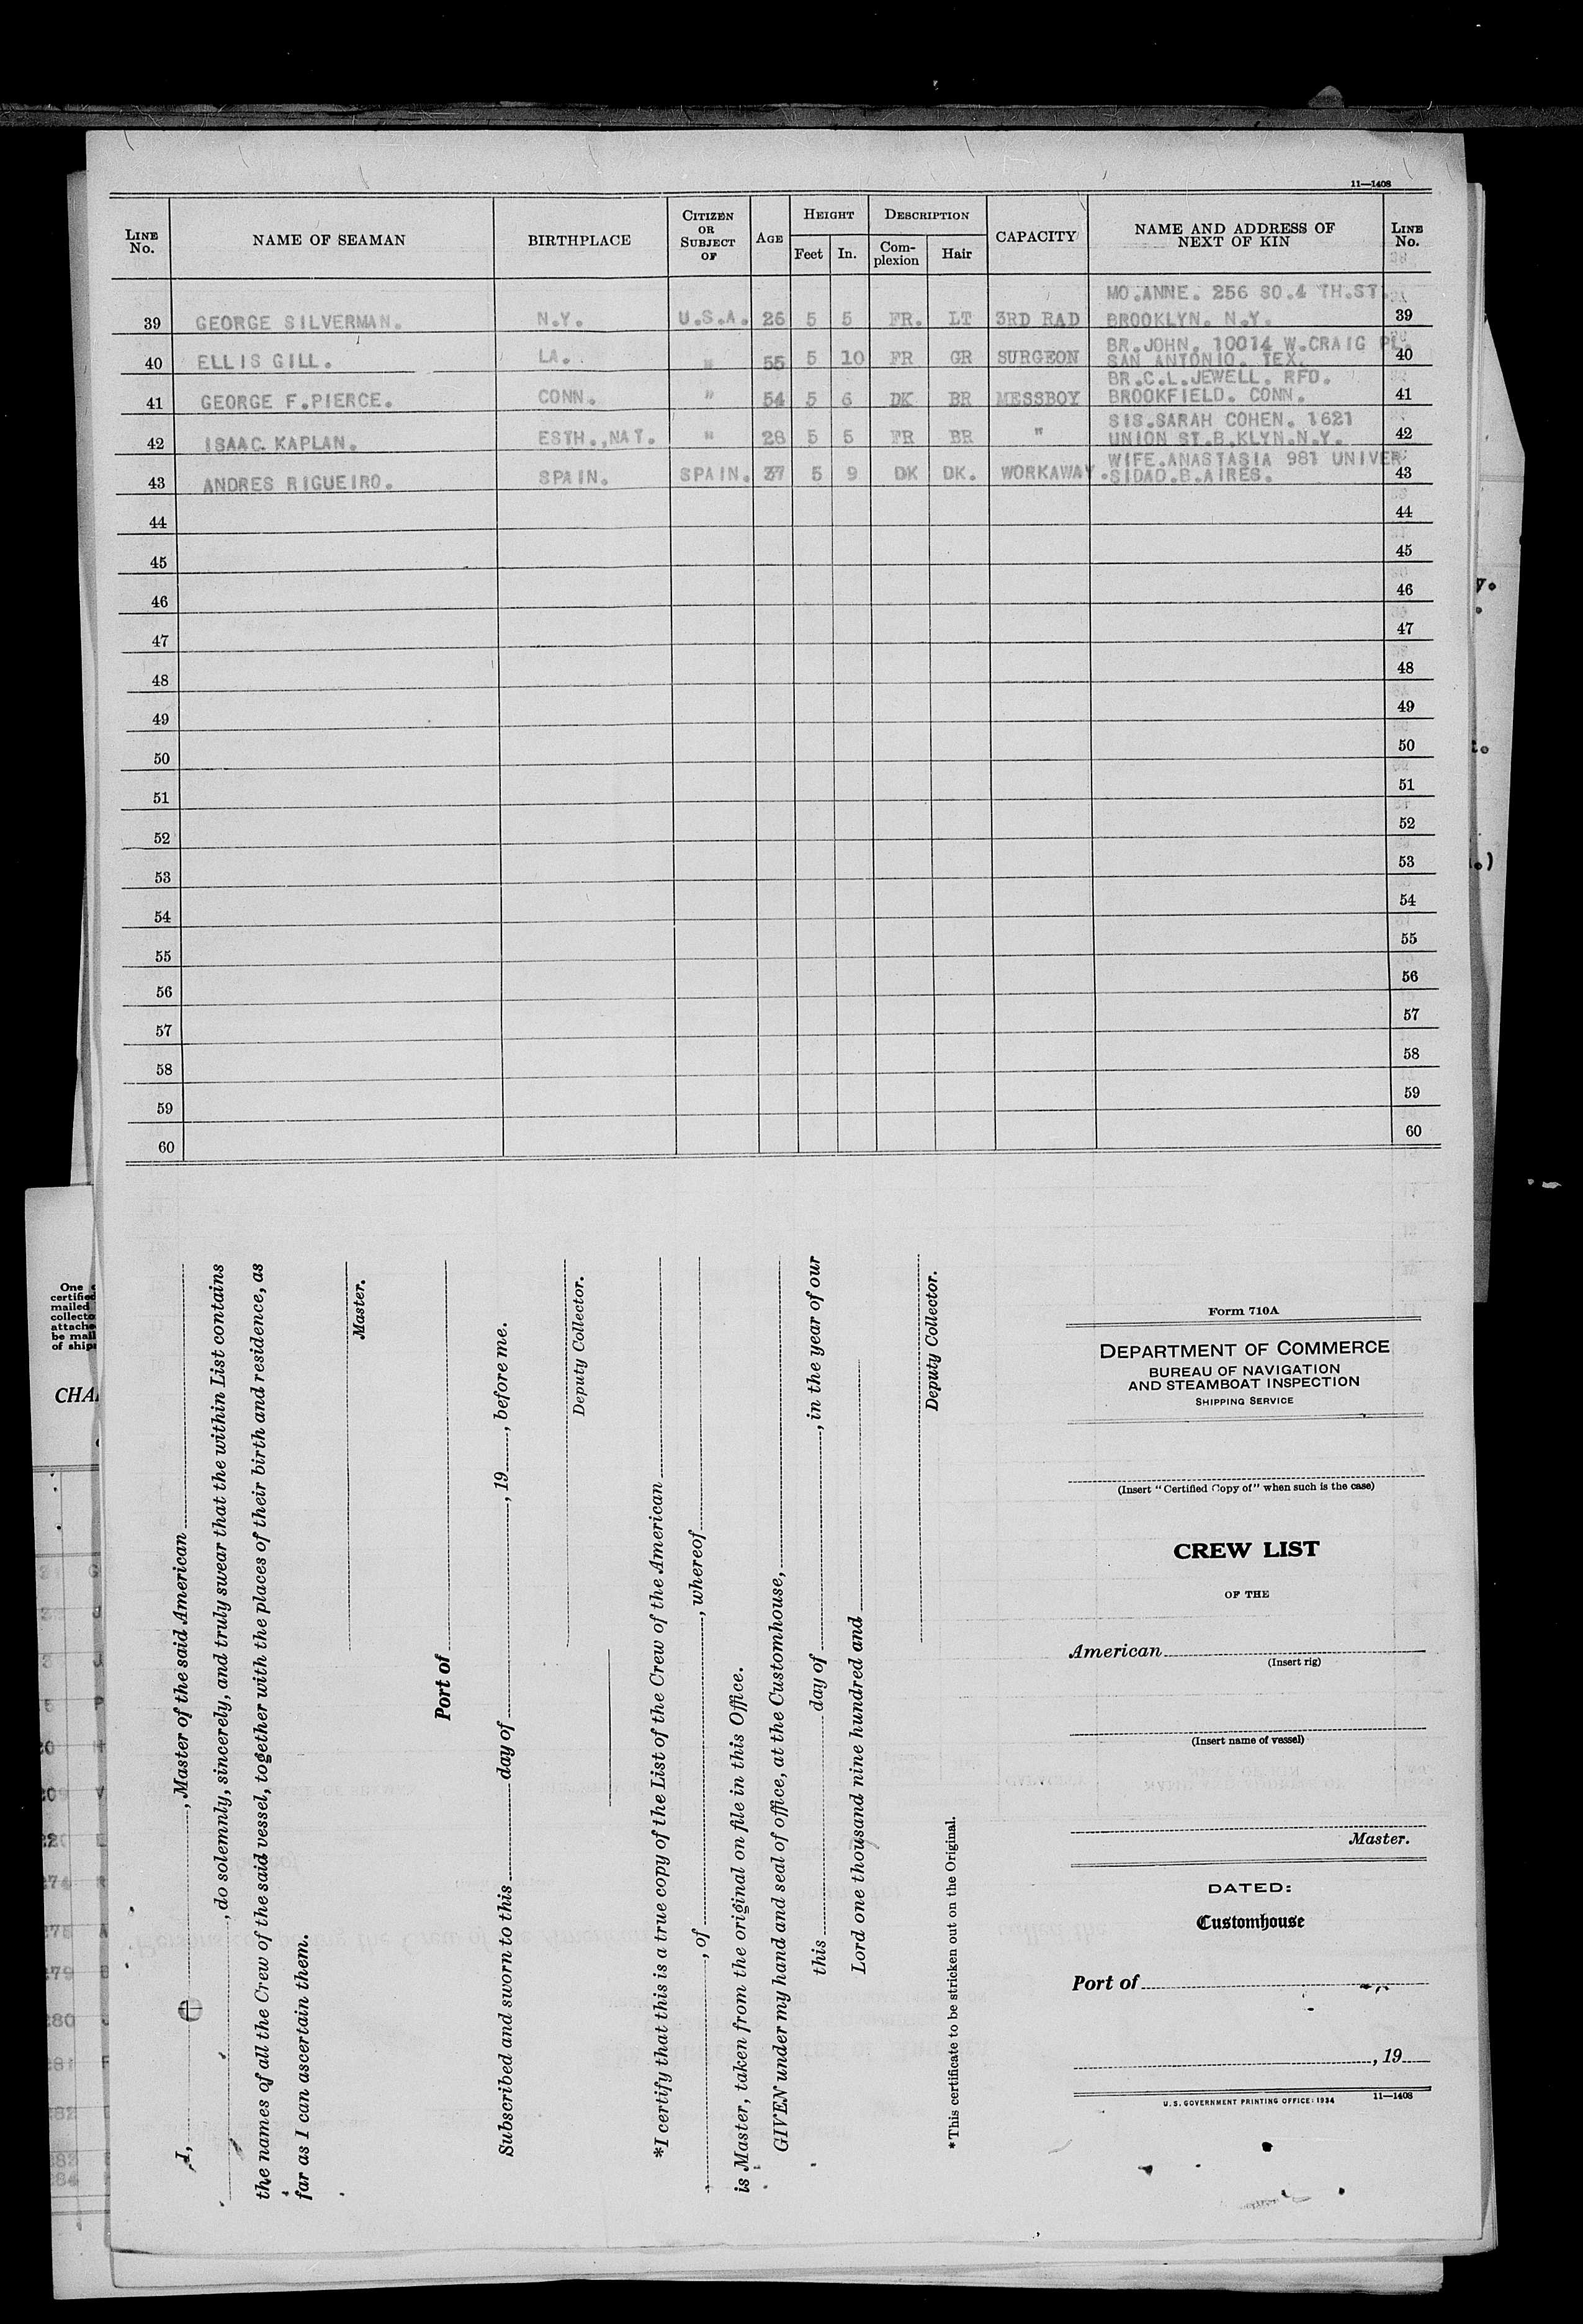 11—1408
LINE No. NAME OF SEAMAN BIRTHPLACE CITIZEN OR SUBJECT OF AGE HEIGHT Feet In. DESCRIPTION Complexion Hair CAPACITY NAME AND ADDRESS OF NEXT OF KIN LINE No.
MO.ANNE. 256 SO.4 TH.ST.
39 GEORGE SILVERMAN. N.Y. U.S.A. 26 5 5 FR. LT 3RD RAD BROOKLYN. N.Y. 39
BR.JOHN. 10014 W.CRAIG PL.
40 ELLIS GILL. LA. " 55 5 10 FR GR SURGEON SAN ANTONIO. TEX. 40
BR.C.L.JEWELL. RFD.
41 GEORGE F.PIERCE. CONN. " 54 5 6 DK BR MESSBOY BROOKFIELD. CONN. 41
SIS.SARAH COHEN. 1621
42 ISAAC KAPLAN. ESTH.,NAT. " 28 5 5 FR BR " UNION ST.B.KLYN.N.Y. 42
WIFE.ANASTASIA 981 UNIVER-
43 ANDRES RIGUEIRO. SPAIN. SPAIN. 37 5 9 DK DK. WORKAWAY. SIDAD.B.AIRES. 43
44 44
45 45
46 46
47 47
48 48
49 49
50 50
51 51
52 52
53 53
54 54
55 55
56 56
57 57
58 58
59 59
60 60
I, , Master of the said American
, do solemnly, sincerely, and truly swear that the within List contains
the names of all the Crew of the said vessel, together with the places of their birth and residence, as
far as I can ascertain them.
Master.
Port of
Subscribed and sworn to this day of , 19 , before me.
Deputy Collector.
*I certify that this is a true copy of the List of the Crew of the American
, of , whereof
is Master, taken from the original on file in this Office.
GIVEN under my hand and seal of office, at the Customhouse,
this day of , in the year of our
Lord one thousand nine hundred and
Deputy Collector.
*This certificate to be stricken out on the Original.
Form 710A
DEPARTMENT OF COMMERCE
BUREAU OF NAVIGATION
AND STEAMBOAT INSPECTION
SHIPPING SERVICE
(Insert "Certified Copy of" when such is the case)
CREW LIST
OF THE
American
(Insert rig)
(Insert name of vessel)
Master.
DATED:
Customhouse
Port of
, 19
U.S. GOVERNMENT PRINTING OFFICE: 1934 11—1408